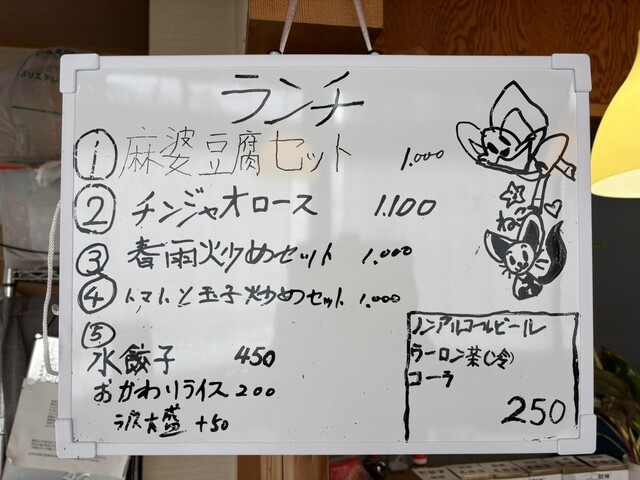 ランチ
① 麻婆豆腐セット 1.000
② チンジャオロース 1.100
③ 春雨炒めセット 1.000
④ トマトと玉子炒めセット 1.000
⑤
水餃子 450
おかわりライス 200
大盛 +50
ね
ノンアルコールビール
ウーロン茶(冷)
コーラ
250